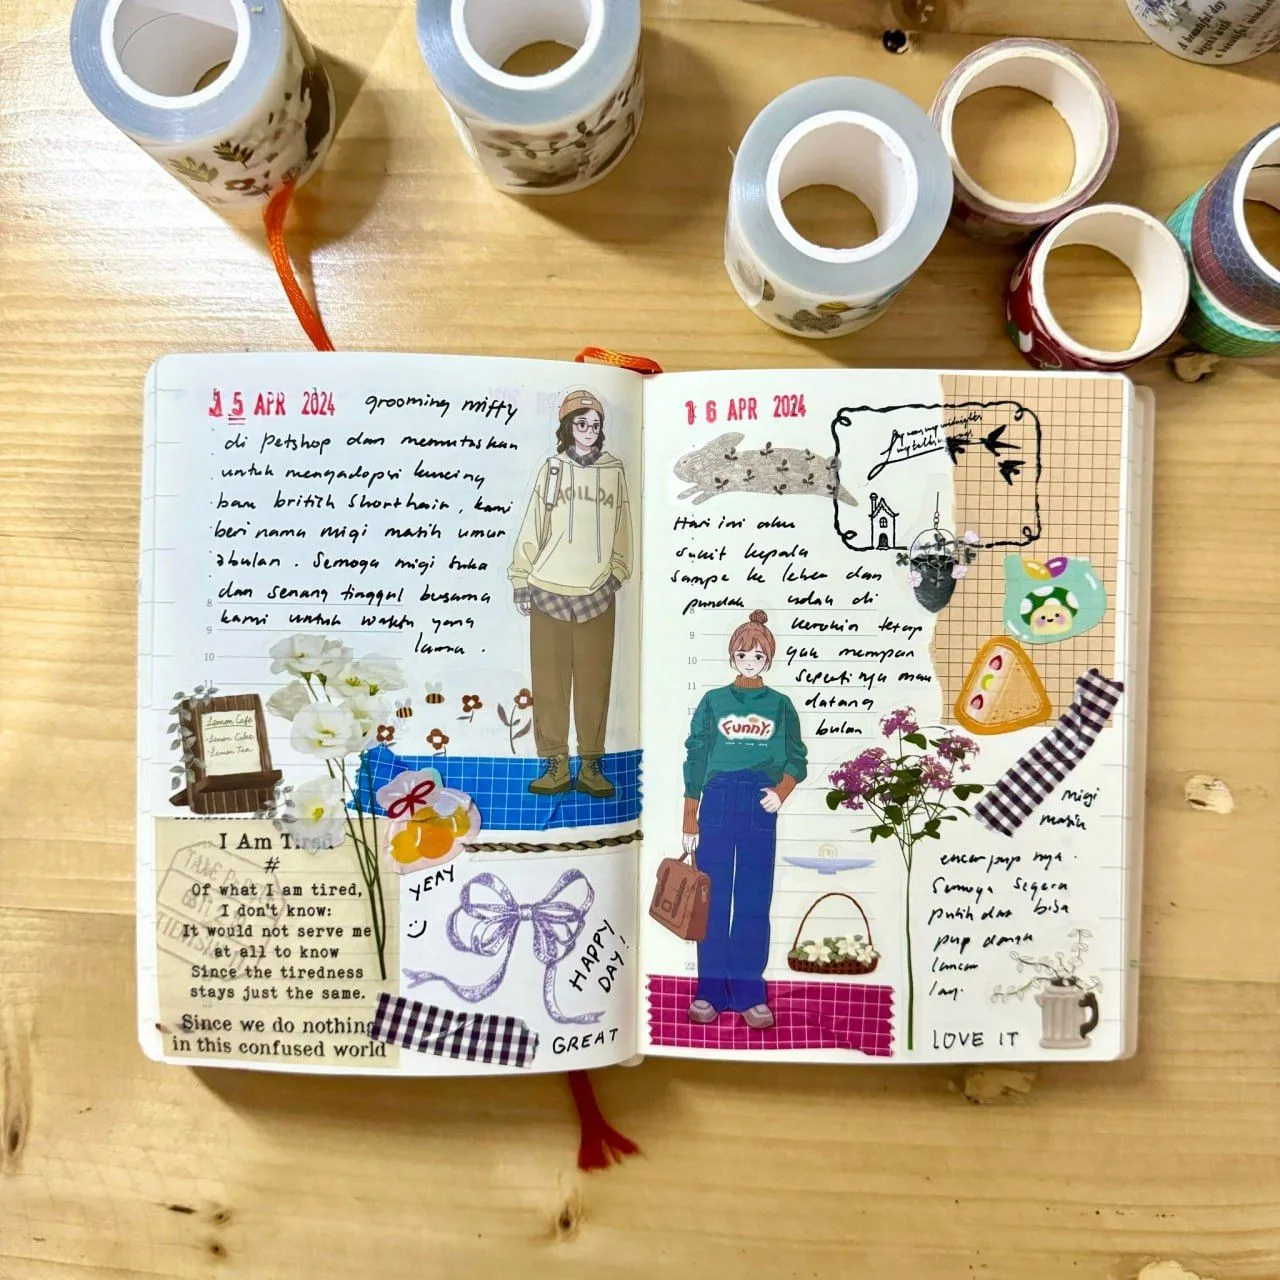 15 APR 2024 grooming miffy
di petshop dan memutuskan
untuk mengadopsi kucing
baru british shorthair, kami
beri nama migi masih umur
3bulan. Semoga migi suka
dan senang tinggal bersama
kami untuk waktu yang
lama.
8
9
10
11
Lemon Cafe
Lemon Cake
Lemon Tea
AOILDA
I Am Tired
#
Of what I am tired,
I don't know:
It would not serve me
at all to know
Since the tiredness
stays just the same.
Since we do nothing
in this confused world
YEAY
:)
HAPPY
DAY!
GREAT
16 APR 2024
Hari ini aku
sakit kepala
sampe ke leher dan
pundak udah di
kerokin tetap
gak mempan
sepertinya mau
datang
bulan
8
9
10
Funny,
22
migi
masih
encer pup nya.
Semoga segera
pulih dan bisa
pup dengan
lancar
lagi.
LOVE IT
A beautiful day
begins with
a beautiful